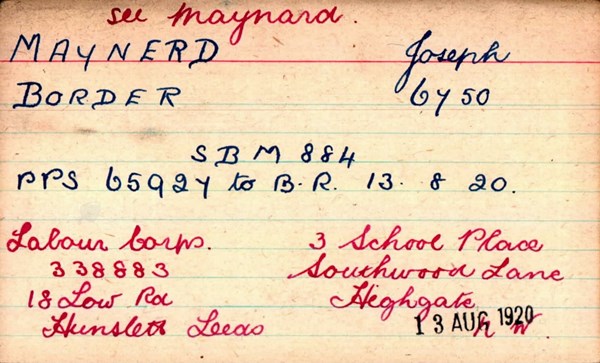 see Maynard.
MAYNERD Joseph
BORDER 6450
SBM 884
PPS 65924 to B.R. 13. 8 20.
Labour Corps. 3 School Place
338883 Southwood Lane
18 Low Rd Highgate
Hunslet Leeds 13 AUG 1920 N W.